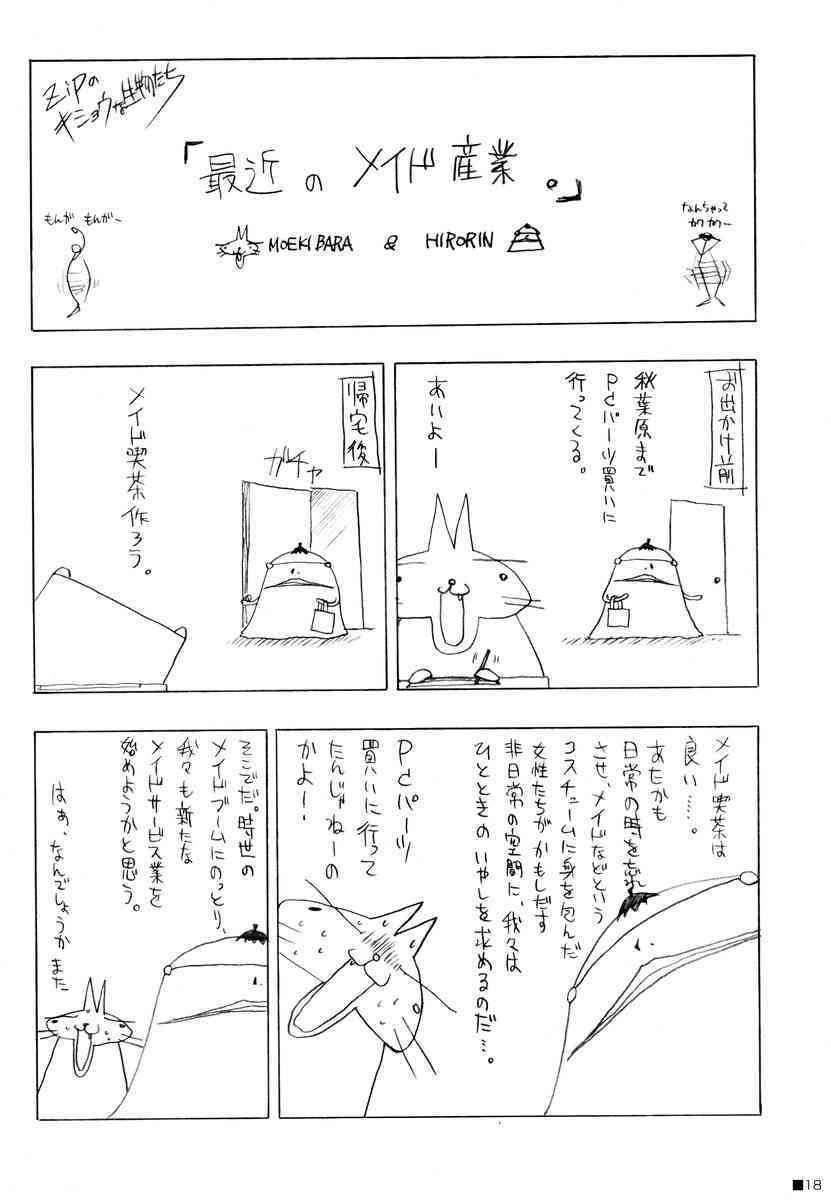 Zipの
キショウな生物たち
「最近のメイド産業。」
もんが もんが〜
MOEKIBARA & HIRORIN
なんちゃって
カワカワー
お出かけ前
秋葉原まで
Pcパーツ買いに
行ってくる。
あいよー
帰宅後
ガチャ
メイド喫茶作ろう。
メイド喫茶は
良い……。
あたかも
日常の時を忘れ
させ、メイドなどという
コスチュームに身を包んだ
女性たちがかもしだす
非日常の空間に、我々は
ひとときのいやしを求めるのだ…。
Pcパーツ
買いに行って
たんじゃねーの
かよー
そこでだ。時世の
メイドブームにのっとり、
我々も新たな
メイドサービス業を
始めようかと思う。
はぁ、なんでしょうかまた
■18